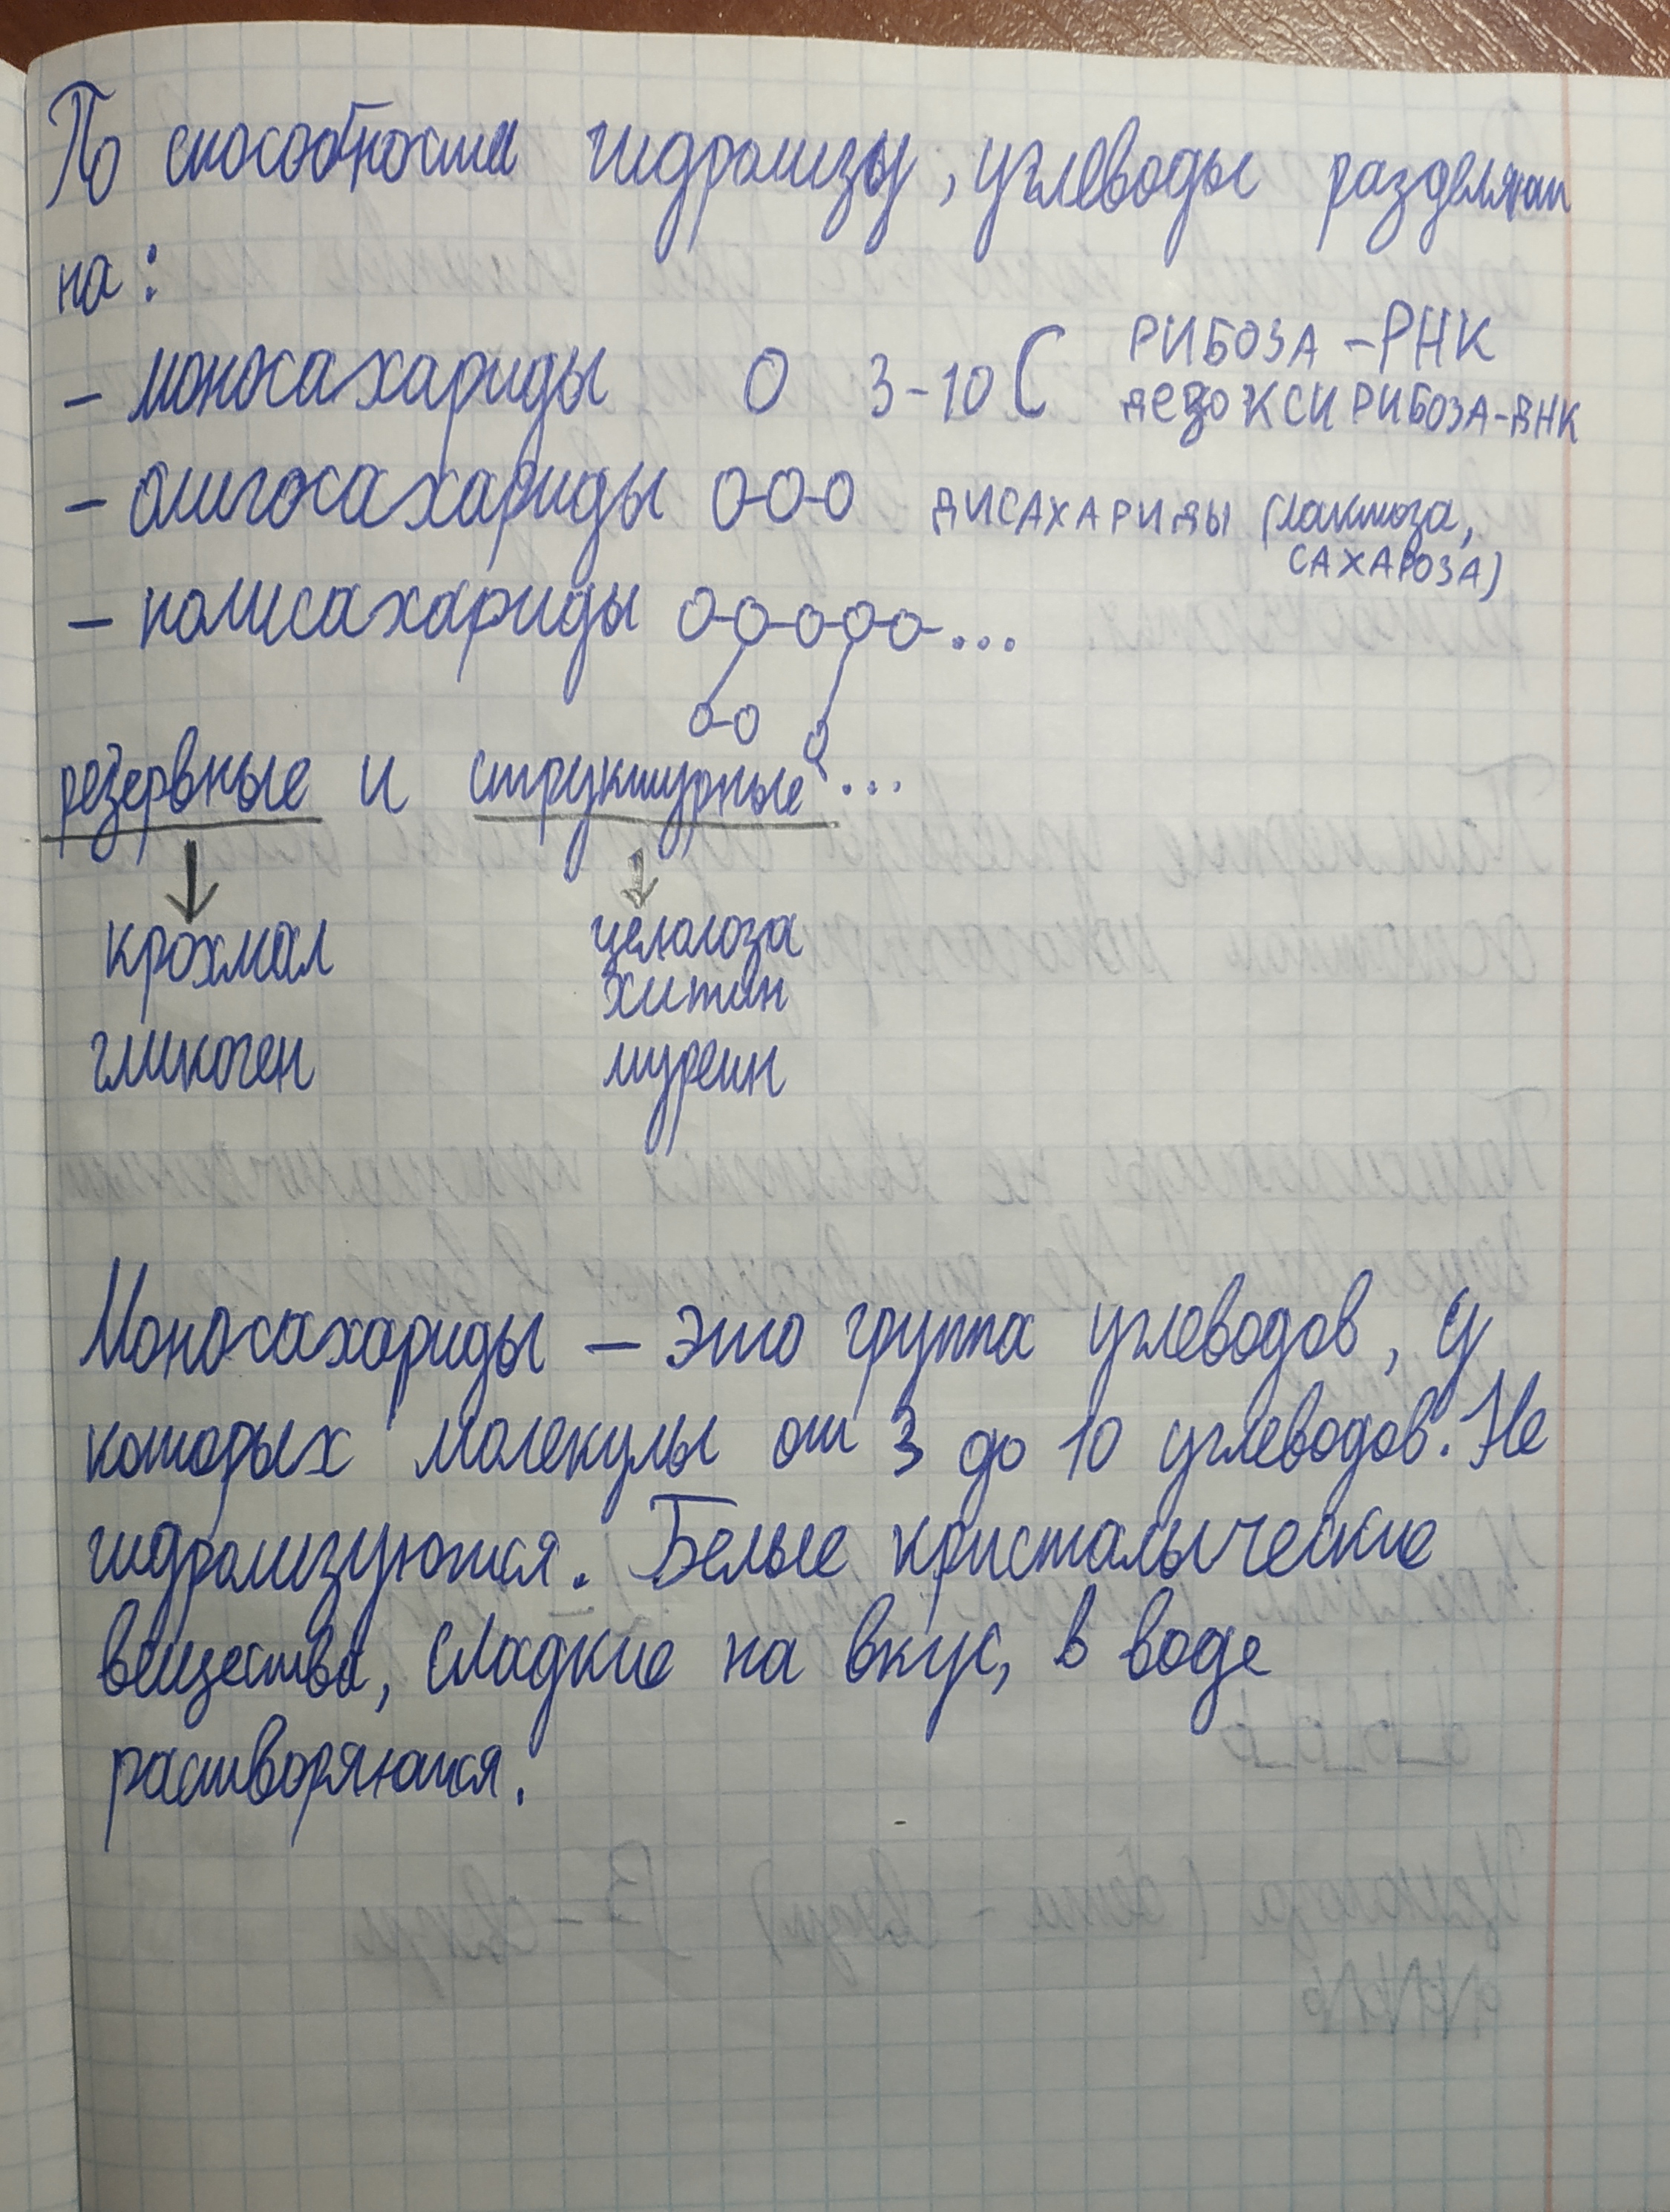 По способности гидролизу, углеводы разделяют
на:
- моносахариды O 3-10 C РИБОЗА - РНК
ДЕЗОКСИРИБОЗА - ДНК
- олигосахариды O-O-O ДИСАХАРИДЫ (лактоза,
САХАРОЗА)
- полисахариды O-O-O-O-O-...
O-O O
резервные и структурные ...
крохмал целюлоза
хитин
гликоген муреин
Моносахариды — это группа углеводов, у
которых молекулы от 3 до 10 углеводов. Не
гидролизуются. Белые кристалыческие
вещества, сладкие на вкус, в воде
растворяются.